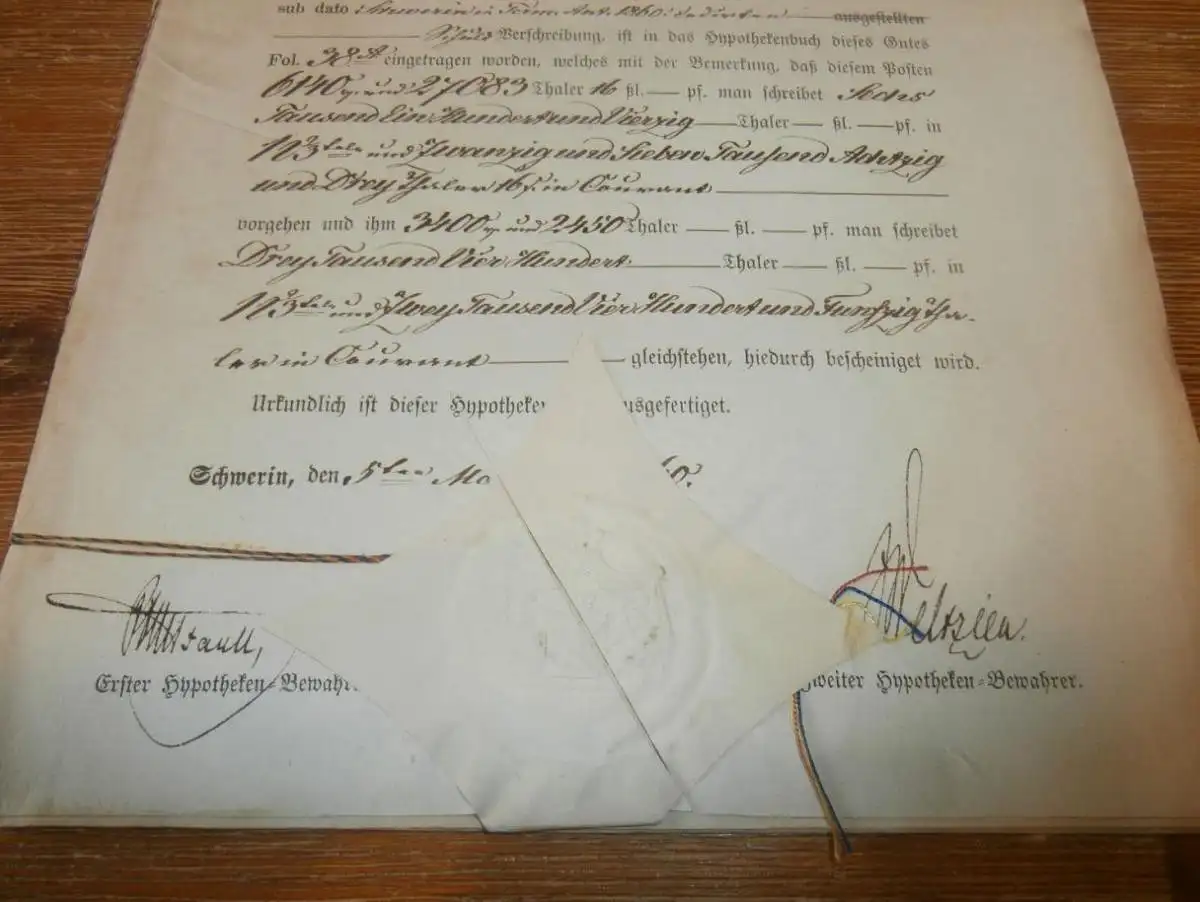 sub dato Schwerin in Term. Ant. 1860. cedirten ausgestellten
Schuld Verschreibung, ist in das Hypothekenbuch dieses Gutes
Fol. 38 eingetragen worden, welches mit der Bemerkung, daß diesem Posten
6140 und 27083 Thaler 16 ßl. — pf. man schreibet Sechs
Tausend Ein Hundert und Vierzig — Thaler — ßl. — pf. in
N 2/3 und Zwanzig und Sieben Tausend Achtzig
und Drey Thaler 16 ßl. in Courant
vorgehen und ihm 3400 und 2450 Thaler — ßl. — pf. man schreibet
Drey Tausend Vier Hundert — Thaler — ßl. — pf. in
N 2/3 und Zwey Tausend Vier Hundert und Funfzig Tha-
ler in Courant — gleichstehen, hiedurch bescheiniget wird.
Urkundlich ist dieser Hypotheke usgefertiget.
Schwerin, den 5ten
Weltzien.
Erster Hypotheken-Bewahr
weiter Hypotheken-Bewahrer.